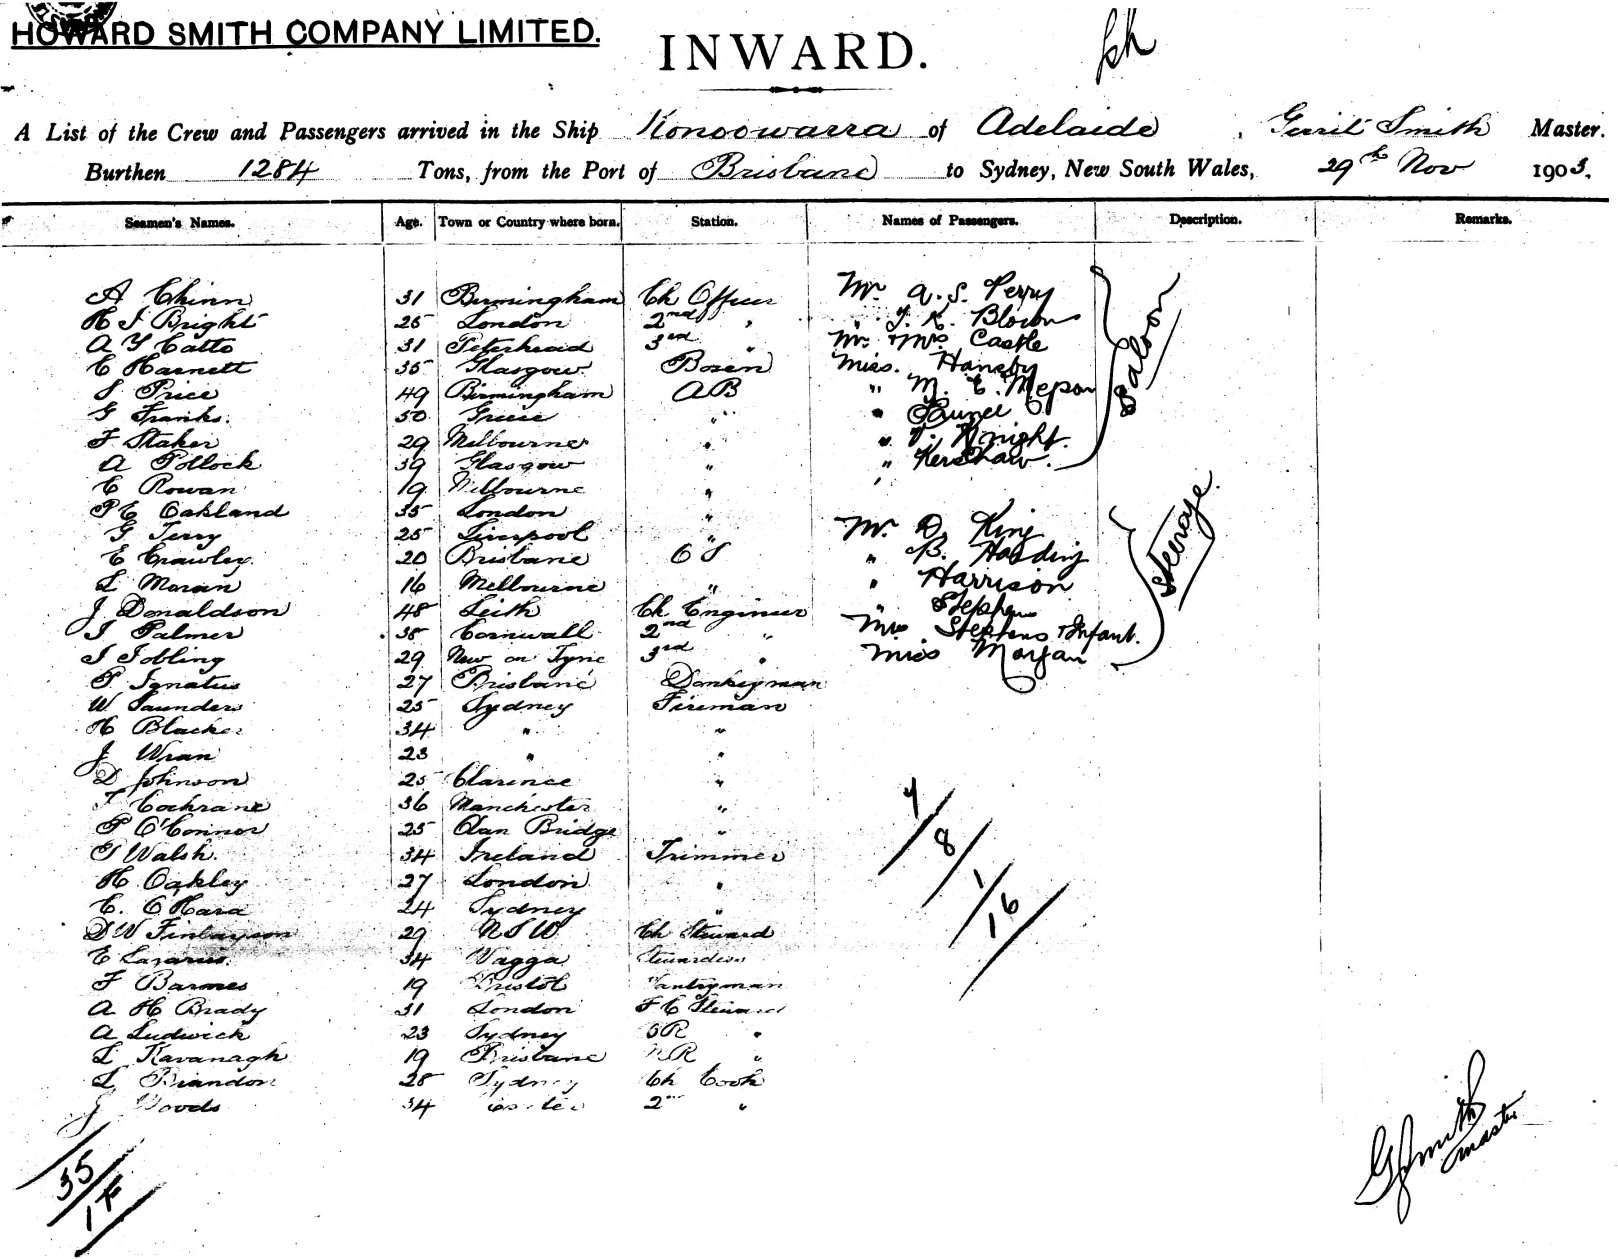 HOWARD SMITH COMPANY LIMITED.
INWARD.
A List of the Crew and Passengers arrived in the Ship Konoowarra of Adelaide, Gerrit Smith Master.
Burthen 1284 Tons, from the Port of Brisbane to Sydney, New South Wales, 29th Nov 1903.
Seamen's Names. Age. Town or Country where born. Station. Names of Passengers. Description. Remarks.
A Chinn 31 Birmingham Ch Officer Mr. A. S. Perry
H J Bright 25 London 2nd " " J. K. Blown
A Y Catto 31 Peterhead 3rd " Mr. Mrs Castle
E Harnett 35 Glasgow Bosen Miss. Hansby
S Price 49 Birmingham AB " M. E. Mepson
G Franks. 50 Greece " "
F Staker 29 Melbourne " " Knight.
A Pollock 39 Glasgow " " Kershaw.
Saloon
E Rowan 19 Melbourne "
P E Oakland 35 London "
G Terry 25 Liverpool " Mr. D. King
E Crawley. 20 Brisbane O S " B. Harding
L Moran 16 Melbourne " " Harrison
J Donaldson 48 Leith Ch Engineer " Stephens
J Palmer 38 Cornwall 2nd " Mrs Stephens + Infant.
J Jobling 29 New on Tyne 3rd " Miss Morgan
Steerage.
P. Ignatius 27 Brisbane Donkeyman
W Saunders 25 Sydney Fireman
H Blacker 34 " "
J Wran 23 " "
D Johnson 25 Clarence "
T Cochrane 36 Manchester "
P O'Connor 25 Clan Bridge "
T Walsh. 34 Ireland Trimmer
H Oakley 27 London "
E. O'Hara 24 Sydney "
D W Finlayson 29 N S W Ch Steward
E Lazarus. 34 Wagga Stewardess
F Barnes 19 Bristol Pantryman
A H Brady 31 London F C Steward
A Ludwick 23 Sydney SR "
L Kavanagh 19 Brisbane "
L Brandon 28 Sydney Ch Cook
J Woods 34 2nd "
7/8/1/16
35/1
G Smith
master